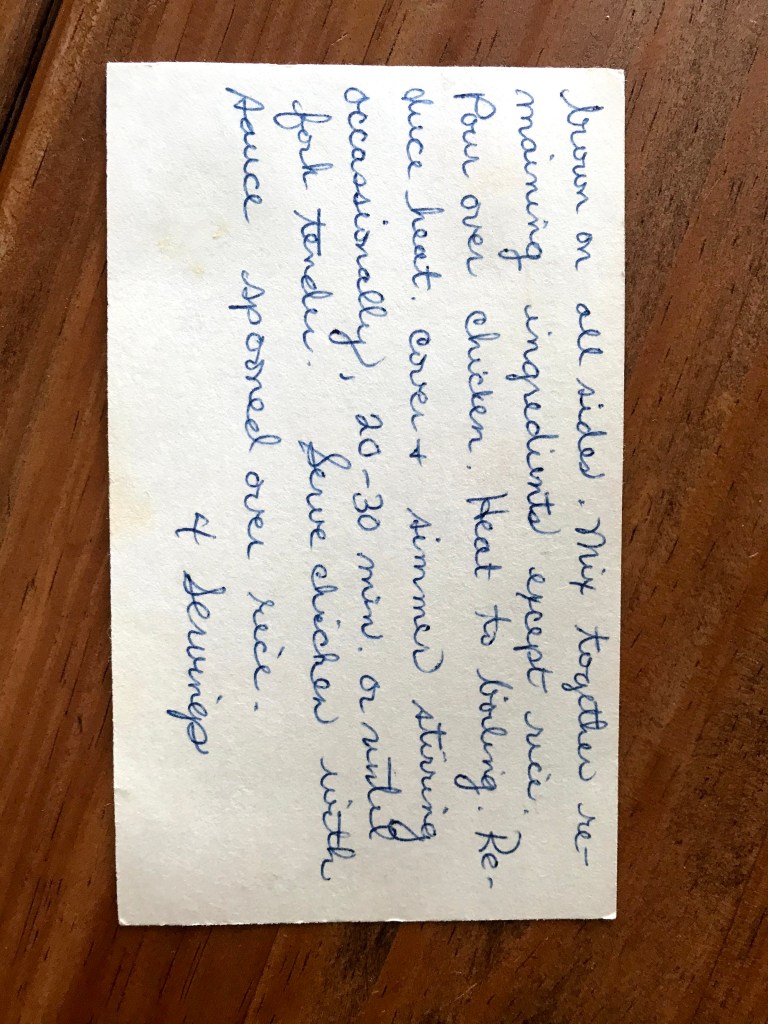 brown on all sides. Mix together re-
maining ingredients except rice.
Pour over chicken. Heat to boiling. Re-
duce heat. cover + simmer stirring
occassionally, 20-30 min. or until
fork tender. Serve chicken with
sauce spooned over rice.
4 Servings